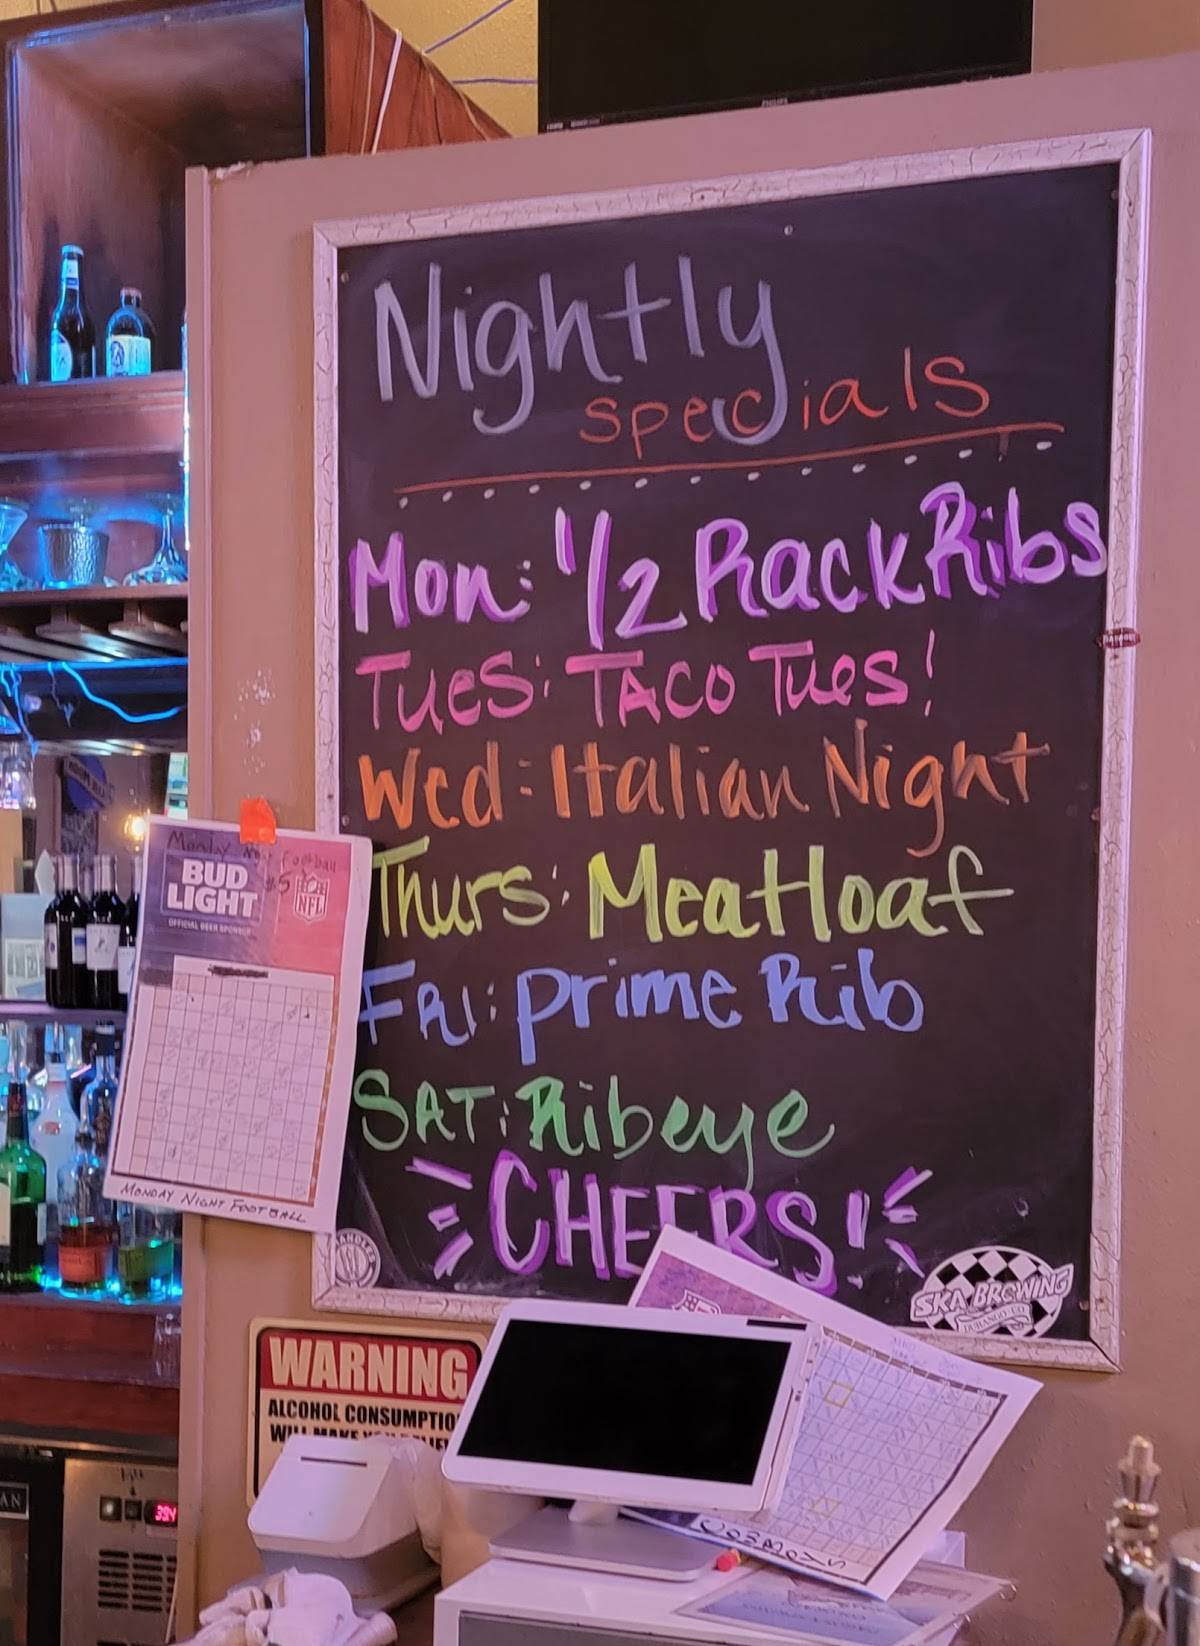 PHILIPS
Nightly
specials
Mon: 1/2 Rack Ribs
Tues: Taco Tues!
Wed: Italian Night
Thurs: Meatloaf
FRI: Prime Rib
SAT: Ribeye
CHEERS!
Monday Football
BUD
LIGHT
NFL
OFFICIAL BEER SPONSOR
MONDAY NIGHT FOOTBALL
SKA BREWING
DURANGO, CO
WARNING
ALCOHOL CONSUMPTIO
WILL MAKE
COWBOYS